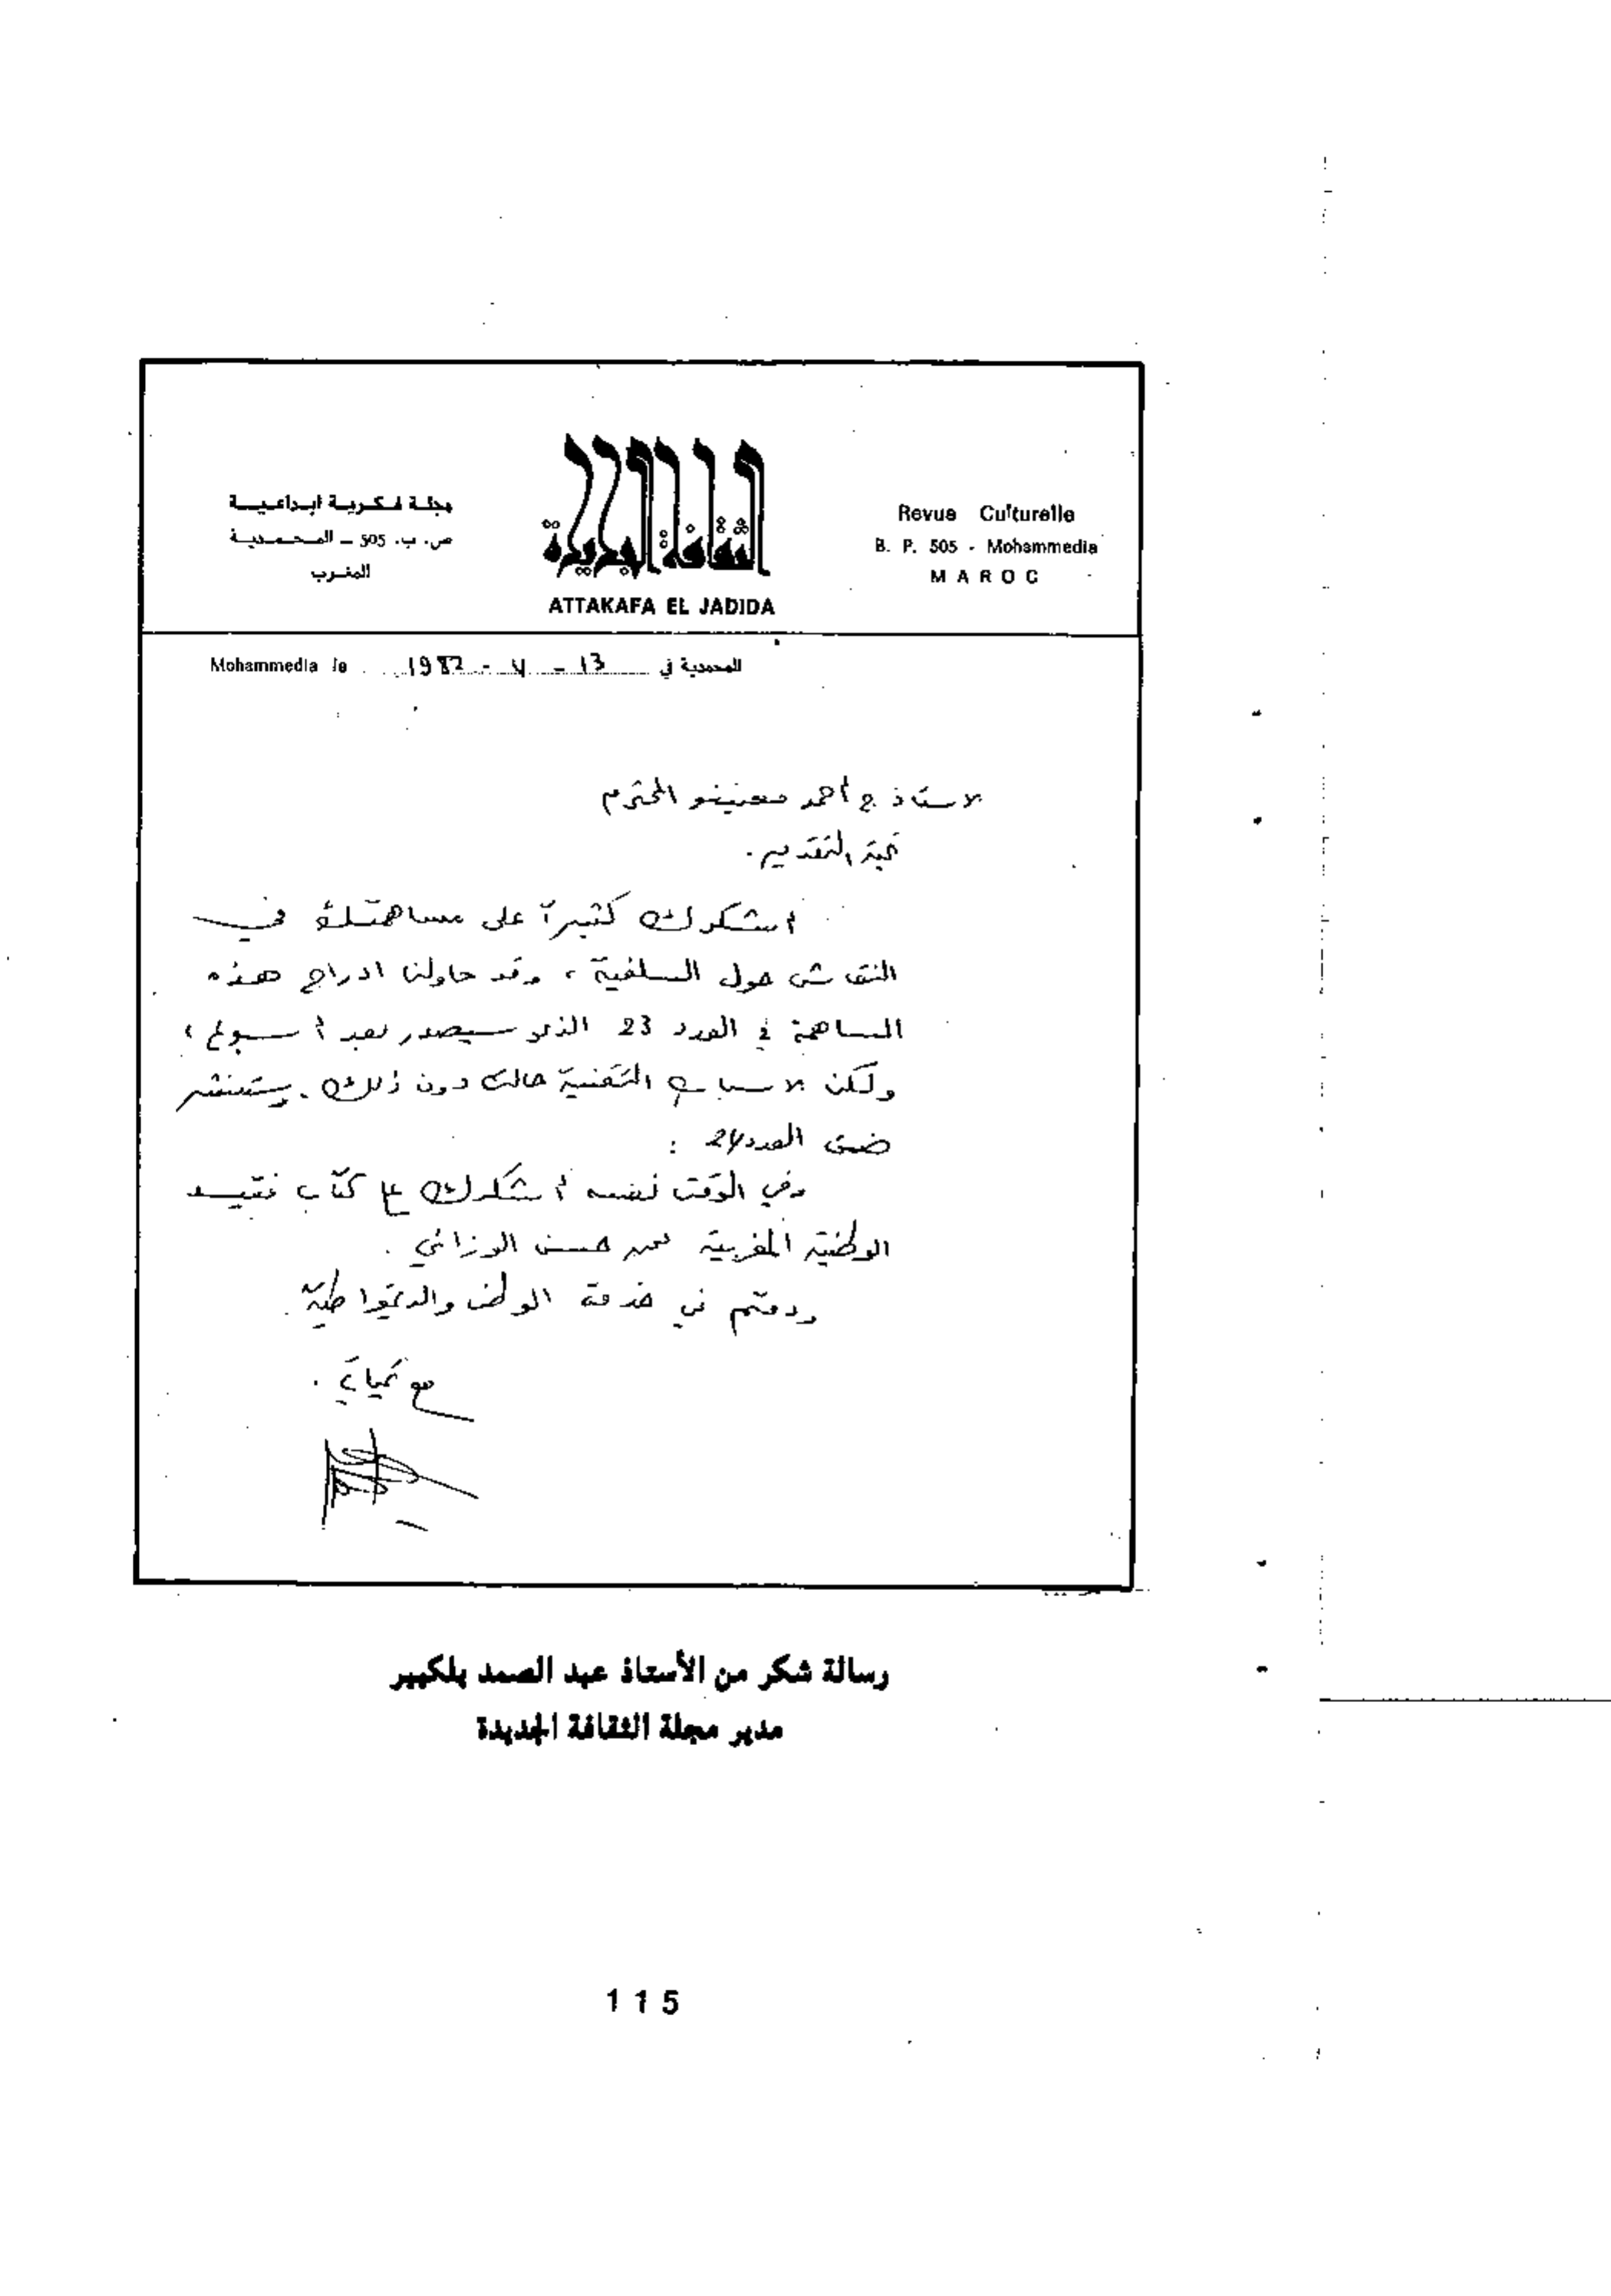 مجلة فكرية ابداعية
ص. ب. 505 – المحمدية
المغرب
الثقافة الجديدة
ATTAKAFA EL JADIDA
Revue Culturelle
B. P. 505 - Mohammedia
MAROC
Mohammedia le 1982 - 4 - 13 المحمدية في
الاستاذ ج أحمد معنينو المحترم
تحية التقدير.
أشكرك كثيراً على مساهمتك في
النقاش حول السلفية، وقد حاولنا ادراج هذه
المساهمة في العدد 23 الذي سيصدر بعد أسبوع،
ولكن الاسباب التقنية حالت دون ذلك. وستنشر
ضمن العدد 24 :
وفي الوقت نفسه أشكرك على كتاب فقيد
الوطنية المغربية محمد حسن الوزاني.
ودمتم في خدمة الوطن والديمقراطية.
مع تحياتي.
رسالة شكر من الأستاذ عبد الصمد بلكبير
مدير مجلة الثقافة الجديدة
115